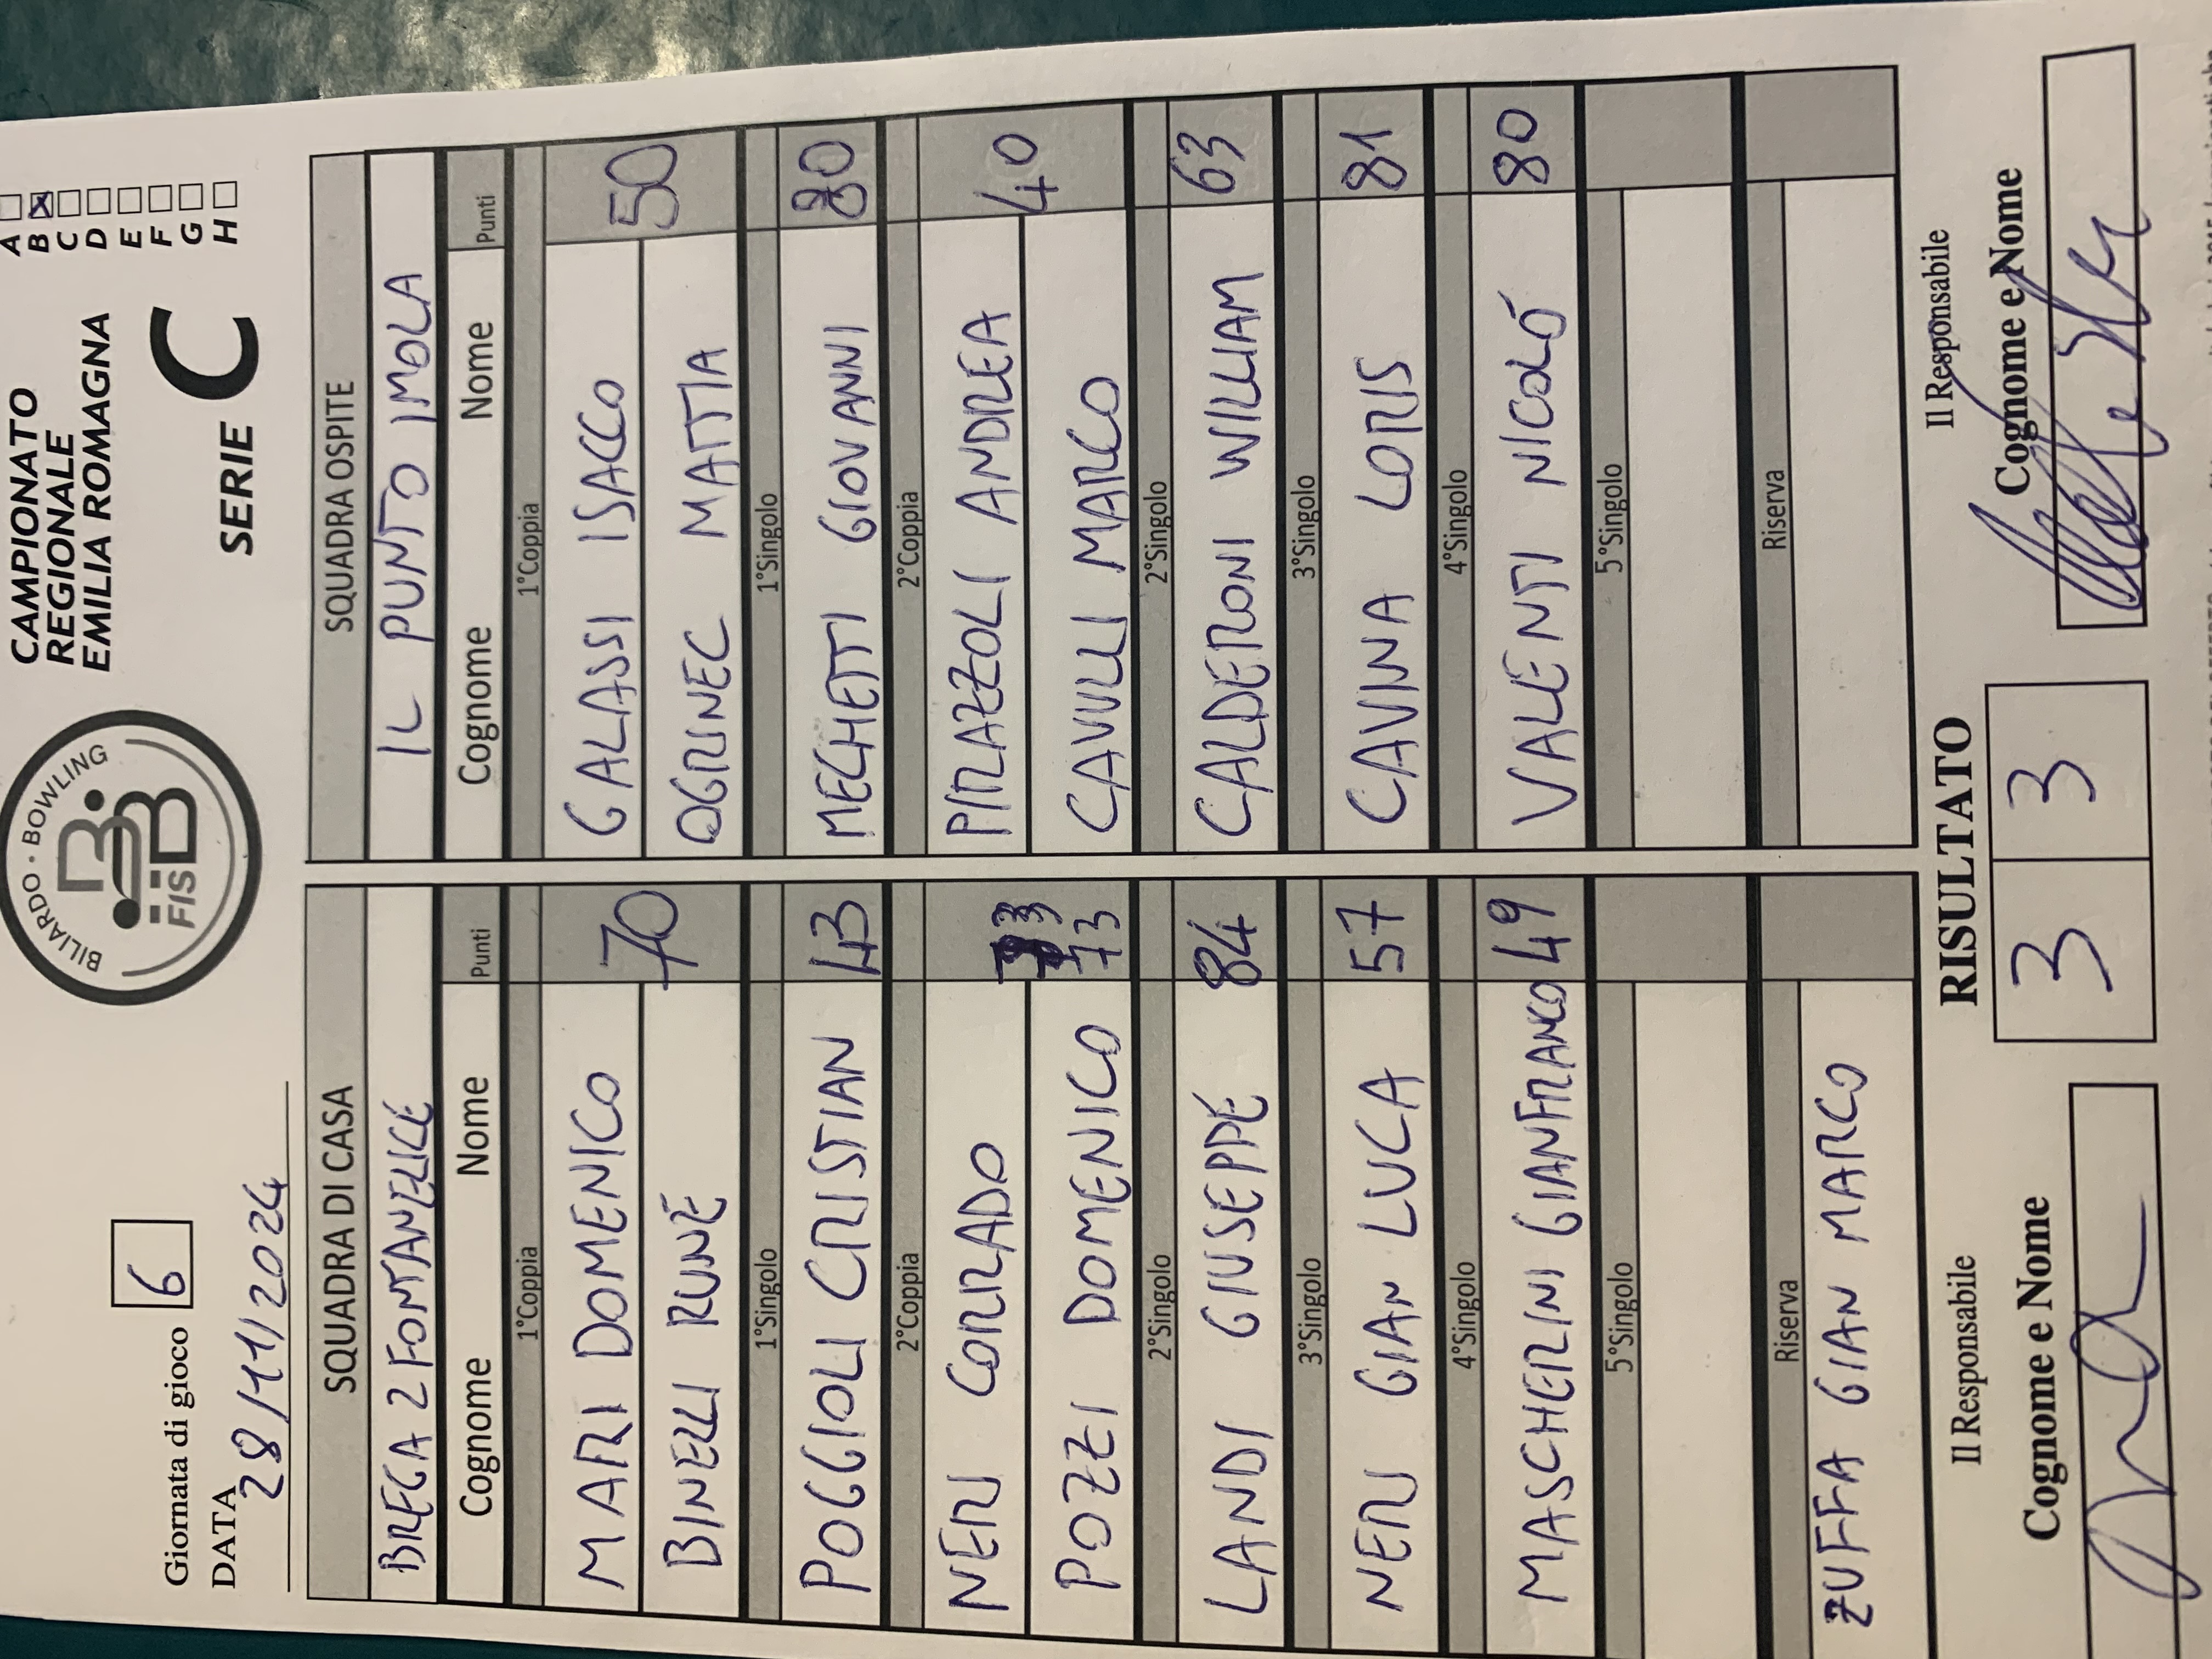 BILIARDO · BOWLING
FISBB
CAMPIONATO
REGIONALE
EMILIA ROMAGNA
SERIE C
A
B X
C
D
E
F
G
H
Giornata di gioco 6
DATA 28/11/2024
SQUADRA DI CASA
BREGA 2 FONTANELICE
Cognome Nome Punti
1°Coppia
MARI DOMENICO
BINELLI RUNE
70
1°Singolo
POGGIOLI CRISTIAN 43
2°Coppia
NERI CORRADO
POZZI DOMENICO 73
2°Singolo
LANDI GIUSEPPE 84
3°Singolo
NERI GIAN LUCA 57
4°Singolo
MASCHERINI GIANFRANCO 49
5°Singolo
Riserva
ZUFFA GIAN MARCO
SQUADRA OSPITE
IL PUNTO IMOLA
Cognome Nome Punti
1°Coppia
GALASSI ISACCO
OGRINEC MATTIA
50
1°Singolo
MECHETTI GIOVANNI 80
2°Coppia
PIRAZZOLI ANDREA
CAVULLI MARCO
40
2°Singolo
CALDERONI WILLIAM 63
3°Singolo
CAVINA LORIS 81
4°Singolo
VALENTI NICOLÓ 80
5°Singolo
Riserva
Il Responsabile
Cognome e Nome
RISULTATO
3 3
Il Responsabile
Cognome e Nome